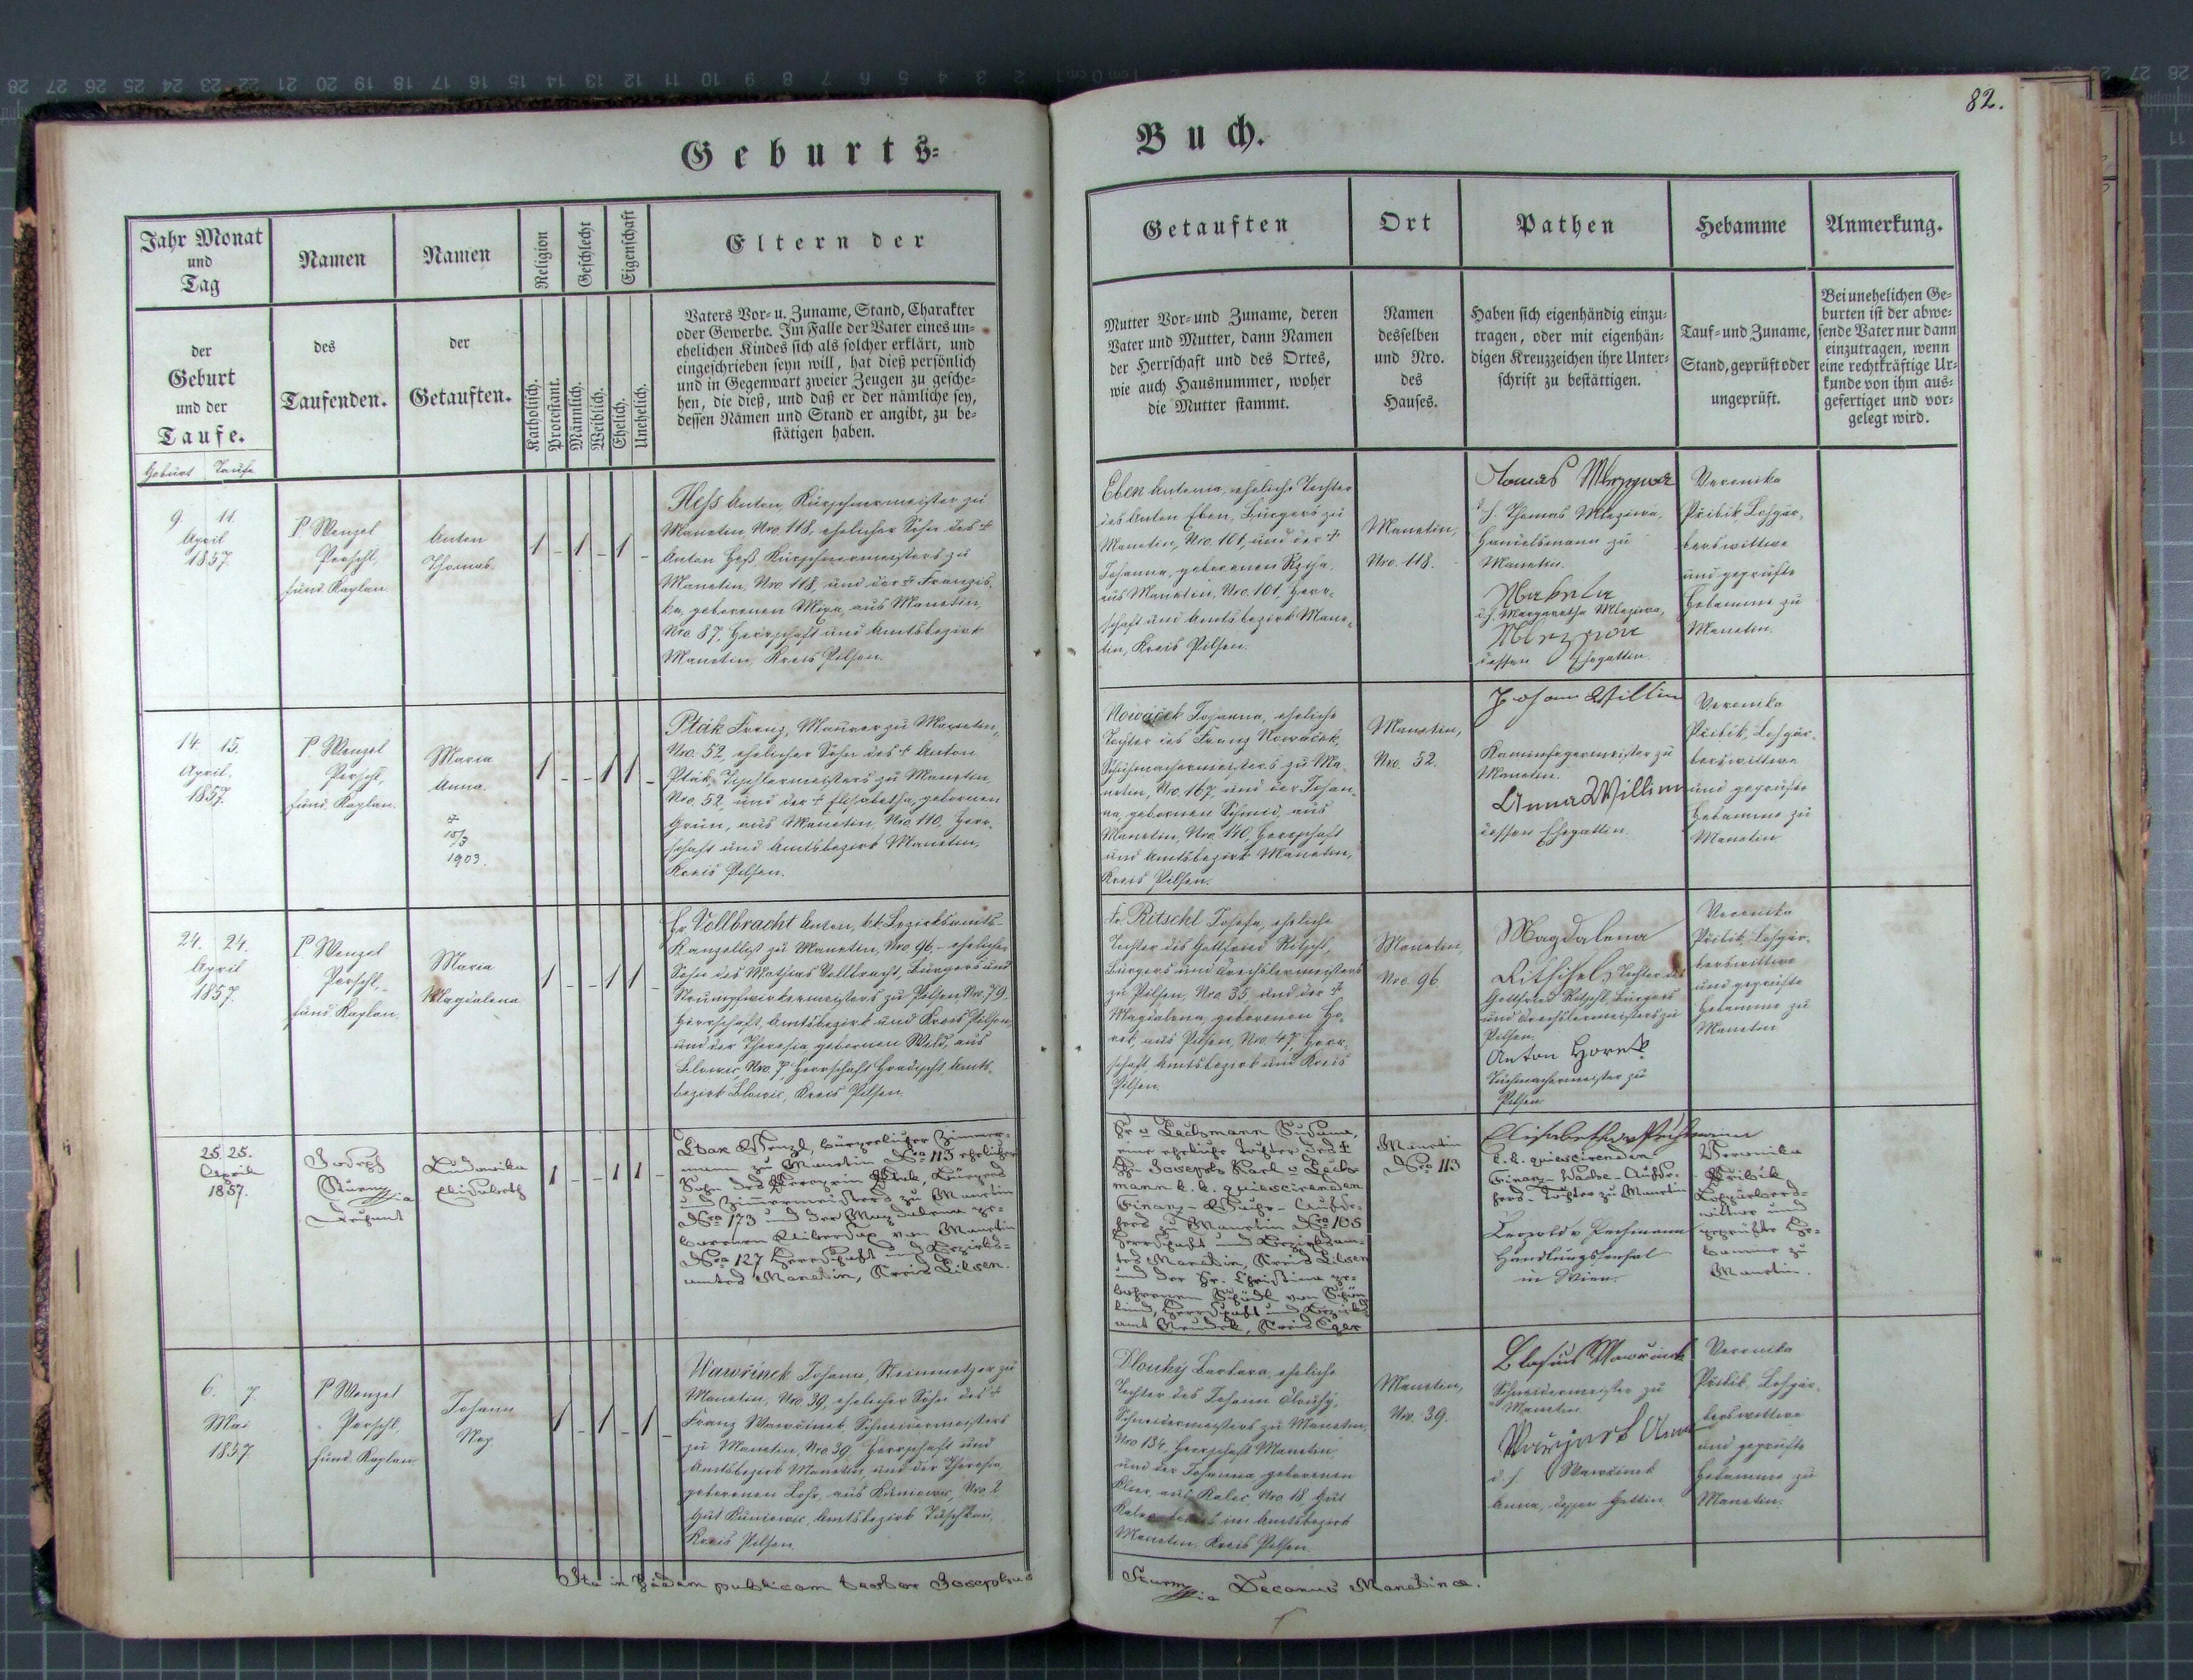 82.
Geburts-
Buch.
Jahr Monat
und
Tag
der
Geburt
und der
Taufe.
Geburt Taufe
Namen
des
Taufenden.
Namen
der
Getauften.
Religion
Katholisch.
Protestant.
Geschlecht
Männlich.
Weiblich.
Eigenschaft
Ehelich.
Unehelich.
Eltern der
Vaters Vor- u. Zuname, Stand, Charakter
oder Gewerbe. Im Falle der Vater eines un-
ehelichen Kindes sich als solcher erklärt, und
eingeschrieben seyn will, hat dieß persönlich
und in Gegenwart zweier Zeugen zu gesche-
hen, die dieß, und daß er der nämliche sey,
dessen Namen und Stand er angibt, zu be-
stätigen haben.
Getauften
Mutter Vor- und Zuname, deren
Vater und Mutter, dann Namen
der Herrschaft und des Ortes,
wie auch Hausnummer, woher
die Mutter stammt.
Ort
Namen
desselben
und Nro.
des
Hauses.
Pathen
Haben sich eigenhändig einzu-
tragen, oder mit eigenhän-
digen Kreuzzeichen ihre Unter-
schrift zu bestättigen.
Hebamme
Tauf- und Zuname,
Stand, geprüft oder
ungeprüft.
Anmerkung.
Bei unehelichen Ge-
burten ist der abwe-
sende Vater nur dann
einzutragen, wenn
eine rechtkräftige Ur-
kunde von ihm aus-
gefertiget und vor-
gelegt wird.
9. 11.
April
1857
P Wenzel
fund. Kaplan
Anton
Thomas
1 - 1 - 1 -
Heß Anton, Kürschnermeister zu
Manetin, Nro. 118, ehelicher Sohn des +
Anton Heß Kürschnermeisters zu
Manetin, Nro. 118, und der + Franzis-
ka, geborenen
aus Manetin,
Nro. 87, Herrschaft und Amtsbezirk
Manetin, Kreis Pilsen.
Eben Antonia, eheliche Tochter
des Anton Eben, Bürgers zu
Manetin, Nro. 101, und der +
Johanna, geborenen
aus Manetin, Nro. 101, Herr-
schaft und Amtsbezirk Mane-
tin, Kreis Pilsen.
Manetin,
Nro. 118.
d. h. Thomas
Handelsmann zu
Manetin.
d. h. Margaretha
dessen Ehegattin.
Veronika
Přibik Lohgär-
berswittwe
und geprüfte
Hebamme zu
Manetin.
14. 15.
April.
1857.
P. Wenzel
fund. Kaplan.
Maria
Anna.
+
15/3
1903.
1 - - 1 1 -
Pták Franz, Maurer zu Manetin,
Nro. 52, ehelicher Sohn des + Anton
Pták, Tischlermeisters zu Manetin,
Nro. 52, und der + Elisabetha, gebornen
Grün, aus Manetin, Nro. 110, Herr-
schaft und Amtsbezirk Manetin,
Kreis Pilsen.
Nowáček Johanna, eheliche
Tochter des Franz Nowáček,
Schuhmachermeisters zu Ma-
netin, Nro. 167, und der Johan-
na, gebornen Schmid, aus
Manetin, Nro. 110, Herrschaft
und Amtsbezirk Manetin,
Kreis Pilsen.
Manetin,
Nro. 52.
Johann Willim
Kaminfegermeister zu
Manetin.
Anna Willim
dessen Ehegattin.
Veronika
Přibik, Lohgär-
berswittwe
und geprüfte
Hebamme zu
Manetin
24. 24.
April
1857.
P Wenzel
fund. Kaplan.
Maria
Magdalena
1 - - 1 1 -
Hr. Vollbracht Anton, kk. Bezirksamts-
Kanzellist zu Manetin, Nro 96 - ehelicher
Sohn des Mathias Vollbracht, Bürgers und
Strumpfwirkermeisters zu Pilsen Nro. 79,
Herrschaft, Amtsbezirk und Kreis Pilsen,
und der Theresia gebornen
aus
Blowic, Nro. 7, Herrschaft Hradischt, Amts-
bezirk Blowic, Kreis Pilsen.
Fr. Ritschl Josefa, eheliche
Tochter des Gottfried Ritschl,
Bürgers und Drechslermeisters
zu Pilsen, Nro. 35 und der +
Magdalena, geborenen Ho-
rek, aus Pilsen, Nro. 47, Herr-
schaft, Amtsbezirk und Kreis
Pilsen.
Manetin,
Nro. 96
Magdalena
Ritschel, Tochter des
Gottfried Ritschl, Bürgers
und Drechslermeisters zu
Pilsen.
Anton Horek
Tuchmachermeister zu
Pilsen
Veronika
Přibik, Lohgär-
berswittwe
und geprüfte
Hebamme zu
Manetin
25. 25.
April
1857.
Joseph
Sturm
Dechant
Ludowika
Elisabeth
1 - - 1 1 -
Wenzl, bürgerlicher Zimmer-
mann zu Manetin Nro 113 ehelicher
Sohn des Peregrin
Bürgers
und Zimmermeisters zu Manetin
Nro 173 und der Magdalena ge-
bornen
von Manetin
Nro 127 Herrschaft und Bezirks-
amtes Manetin, Kreis Pilsen.
eine eheliche Tochter des +
Hr. Joseph Karl v.
mann k. k. quiescirenden
Finanz-Wache-Aufse-
hers zu Manetin Nro 105
Herrschaft und Bezirksam-
tes Manetin, Kreis Pilsen
und der Fr. Christina ge-
bohrenen
von Schön-
lind, Herrschaft und Bezirks-
amt Neudek, Kreis Eger
Manetin
Nro 113
Elisabetha
k. k. quiescirenden
Finanz-Wache-Aufse-
hers-Tochter zu Manetin
Leopold v.
in Wien.
Veronika
Přibik
Lohgärbers-
wittwe und
geprüfte He-
bamme zu
Manetin.
6. 7.
Mai
1857
P Wenzel
fund. Kaplan
Johann
Nep
1 - 1 - 1 -
Wawřinek Johann, Steinmetzer zu
Manetin, Nro. 39, ehelicher Sohn des +
Franz Wawřinek, Schneidermeisters
zu Manetin, Nro. 39, Herrschaft und
Amtsbezirk Manetin, und der Theresia,
geborenen Lohr, aus
Nro. 2
Gut
Amtsbezirk Tuschkau,
Kreis Pilsen.
Dlouhý Barbara, eheliche
Tochter des Johann Dlouhý,
Schneidermeisters zu Manetin,
Nro 134, Herrschaft Manetin,
und der Johanna geborenen
aus Kalec, Nro 18, Gut
Kalec
im Amtsbezirk
Manetin, Kreis Pilsen.
Manetin,
Nro. 39.
Blasius Wawřinek
Schneidermeister zu
Manetin
d. h. Wawřinek
Anna, dessen Gattin.
Veronika
Přibik, Lohgär-
berswittwe
und geprüfte
Hebamme zu
Manetin.
Ita in fidem publicam testor Josephus
Sturm Decanus Manetinæ.